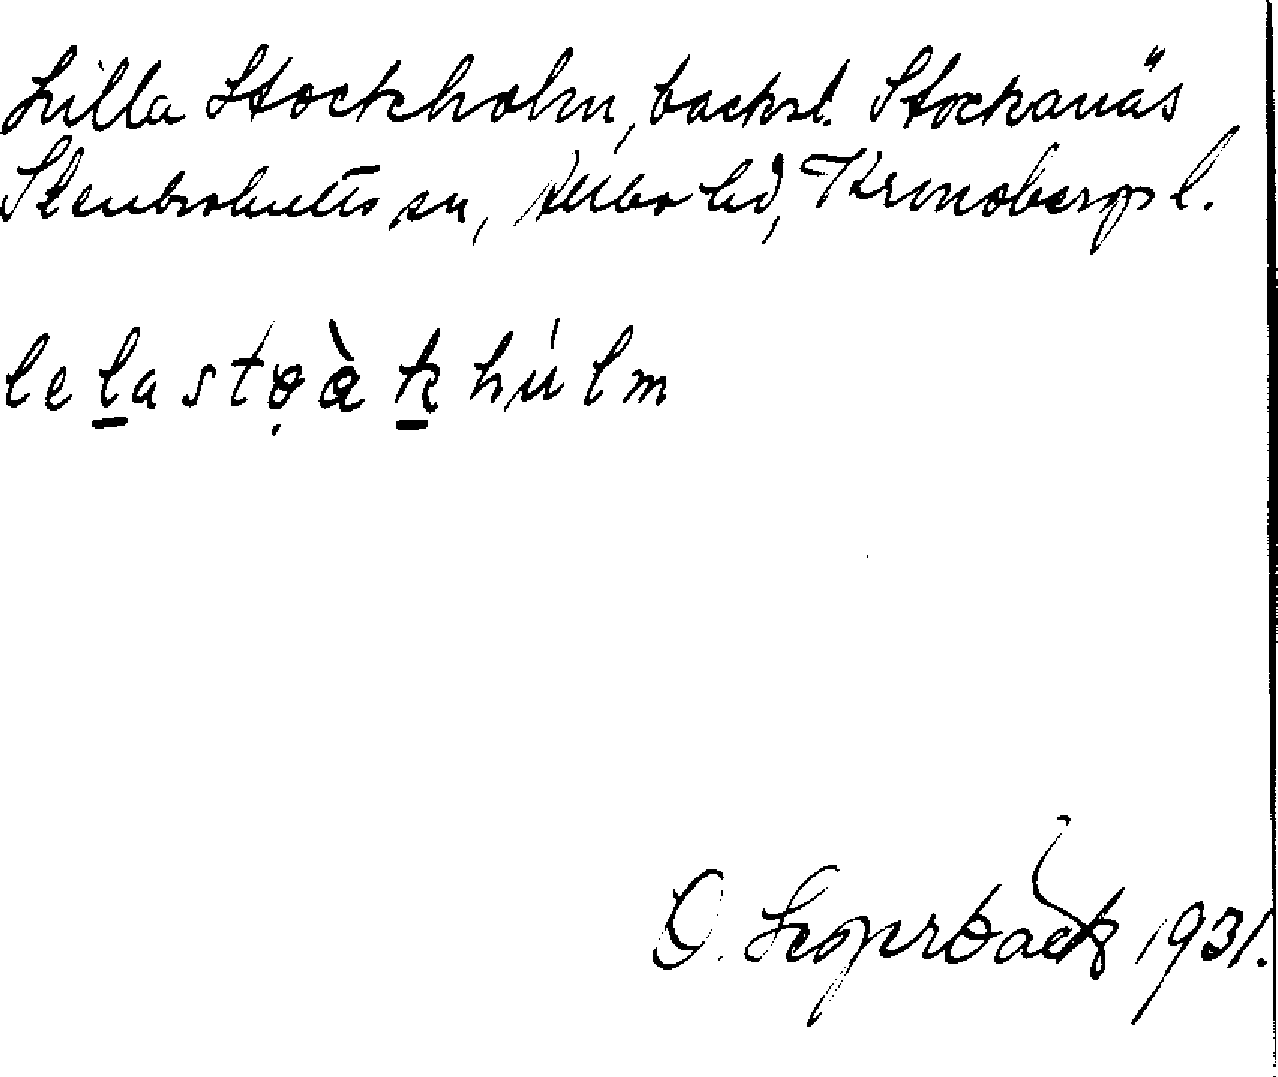 Lilla Stockholm, backsl. Stockanäs
Stenbrohults sn, Allbo hd, Kronobergs l.
lelastọàk húlm
O. Segerbäck 1931.